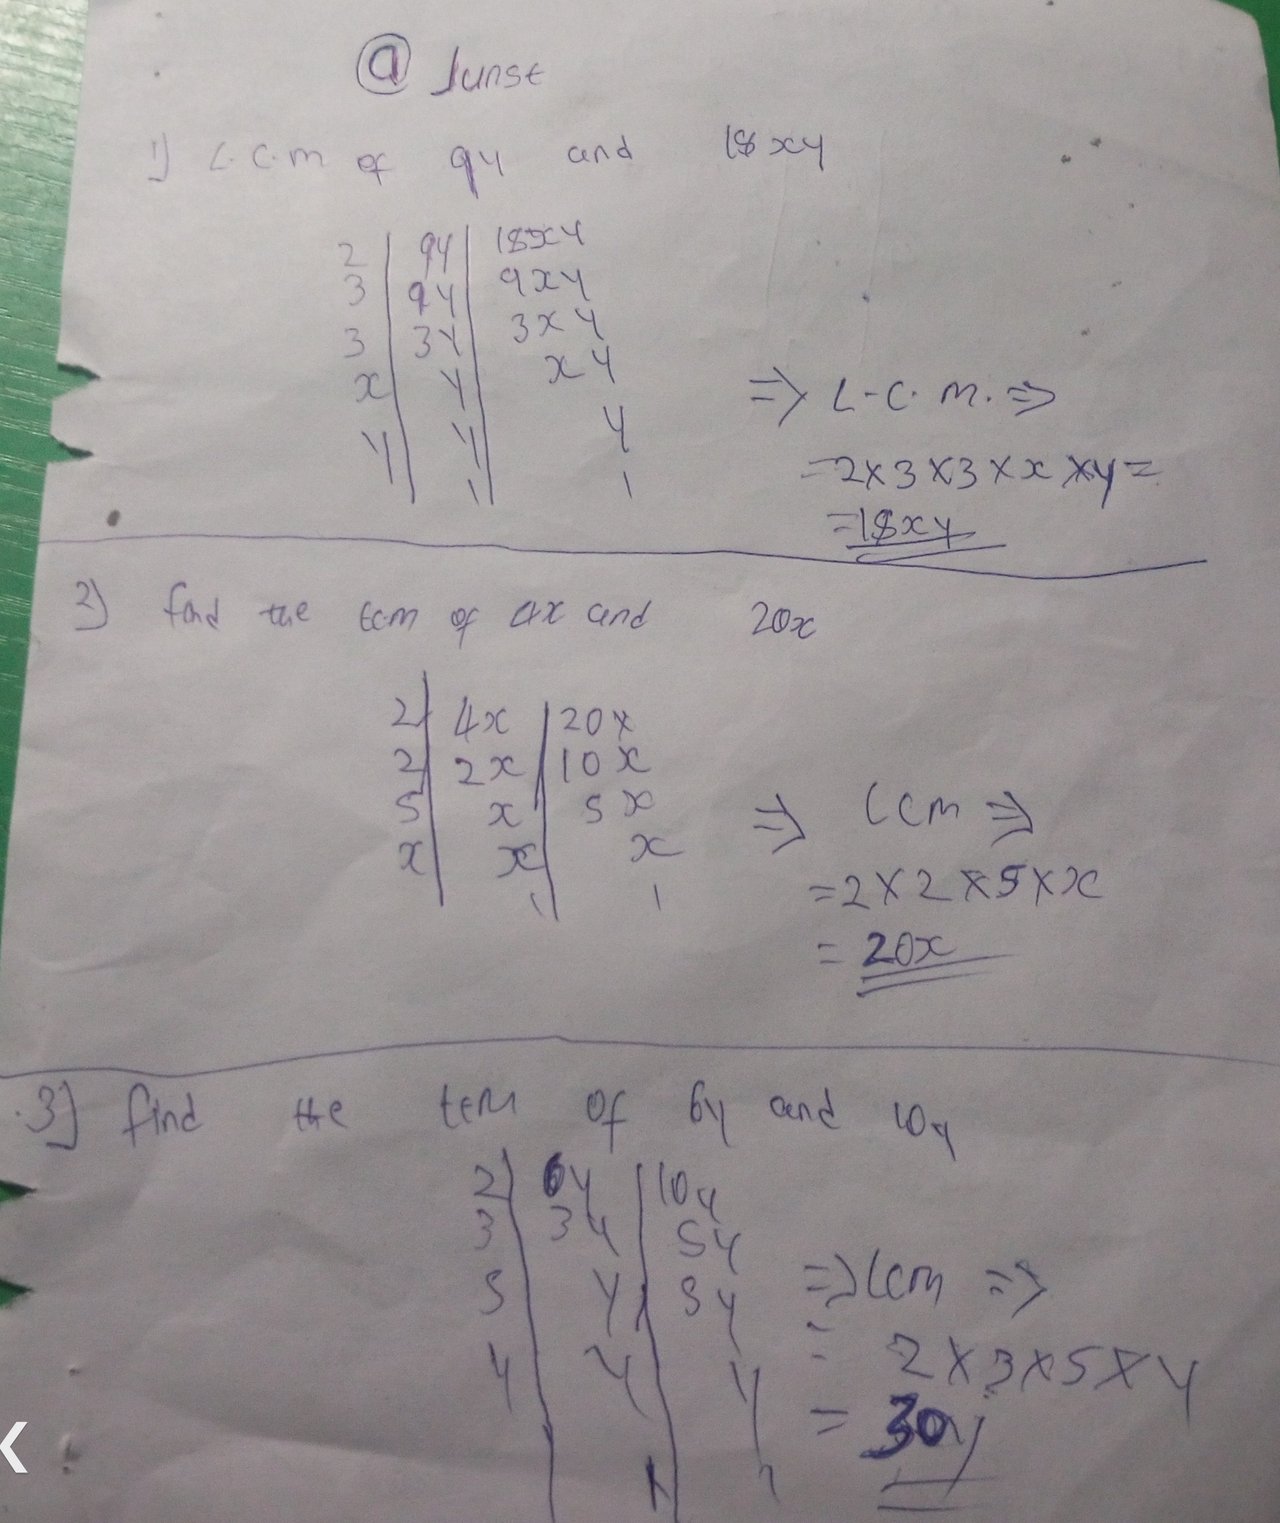 @ Junse
1) L.C.M of 9y and 18xy
2 | 9y | 18xy
3 | 9y | 9xy
3 | 3y | 3xy
x | y | xy
y | y | y
1 | 1
=> L.C.M. =>
=2×3×3×x×y=
=18xy
2) find the LCM of 4x and 20x
2 | 4x | 20x
2 | 2x | 10x
5 | x | 5x
x | x | x
1 | 1
=> LCM =>
=2×2×5×x
= 20x
3) find the LCM of 6y and 10y
2 | 6y | 10y
3 | 3y | 5y
5 | y | 5y
y | y | y
1 | 1
=> LCM =>
= 2×3×5×y
= 30y